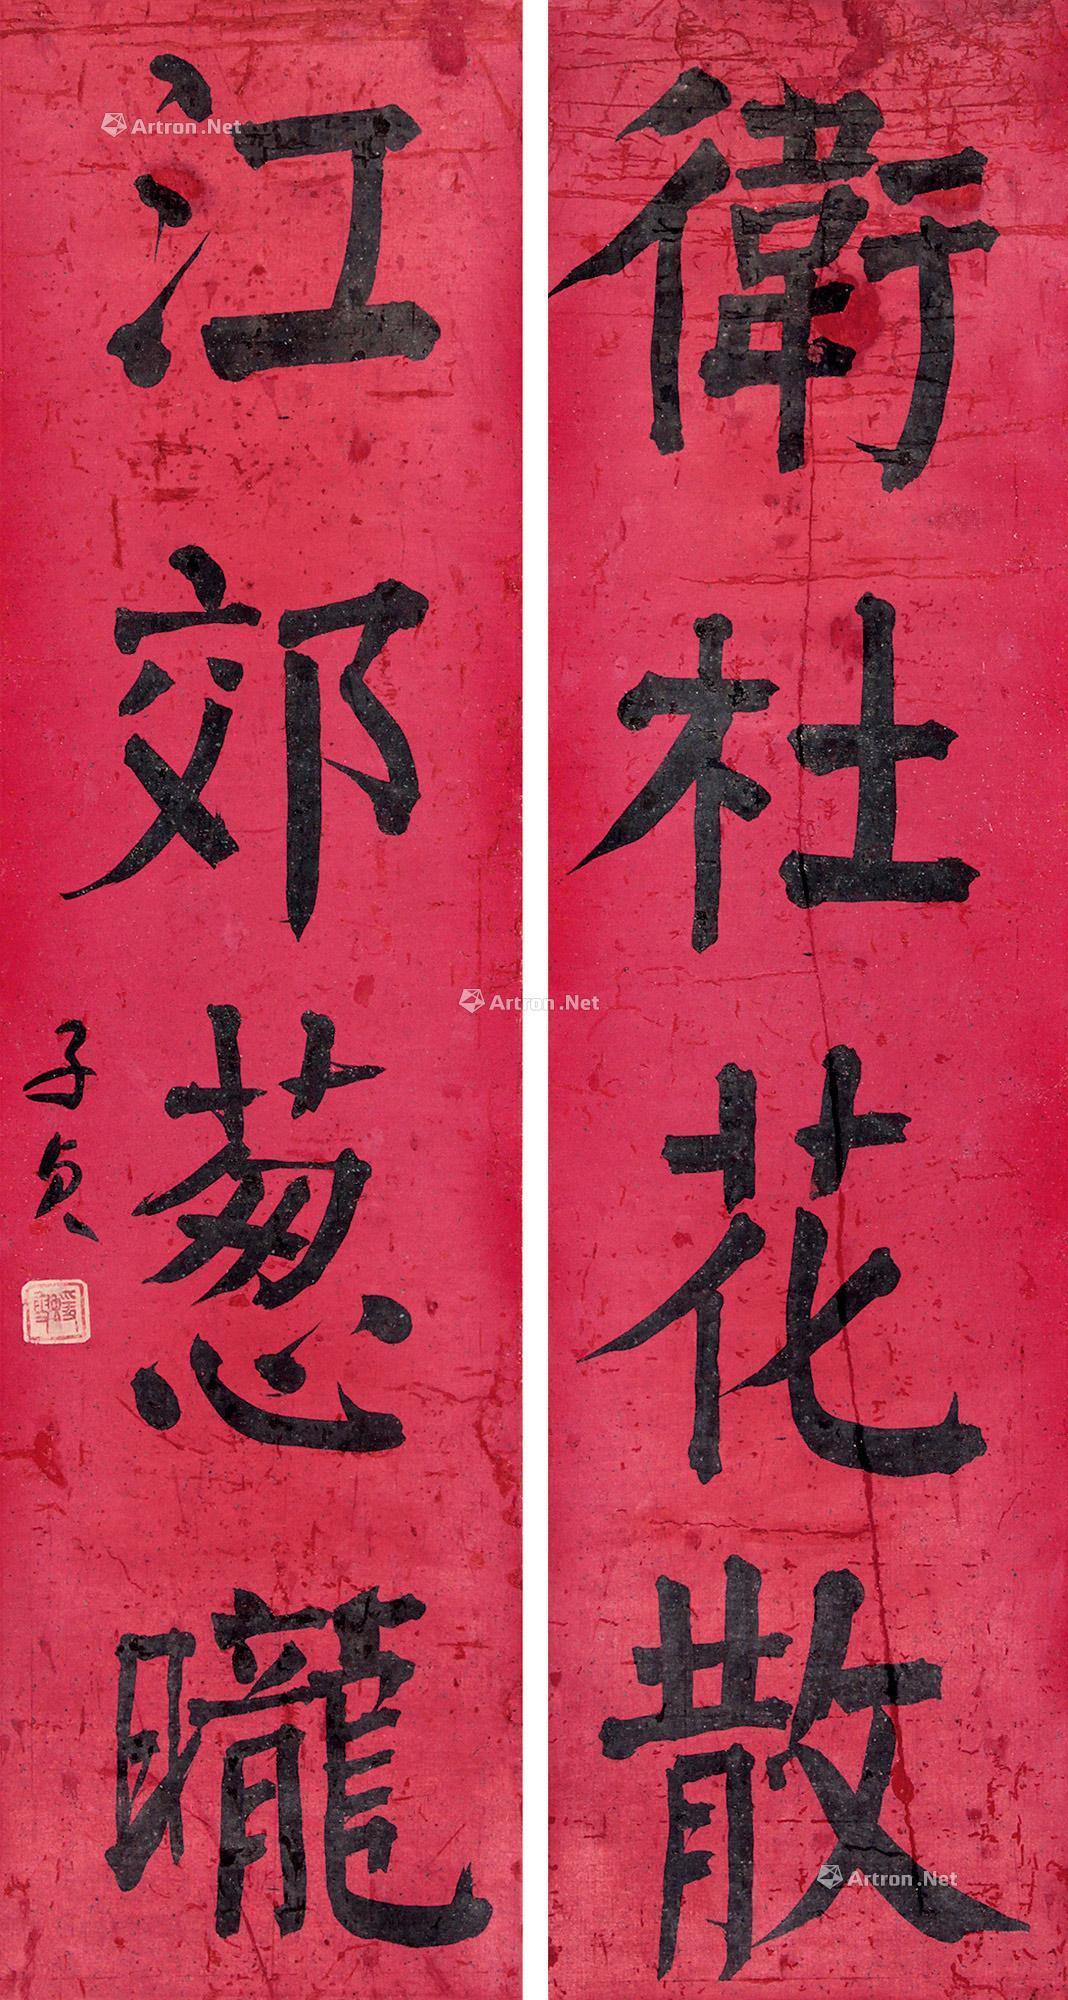 衛社花散
江郊葱曨
子貞
Artron.Net
Artron.Net
Artron.Net